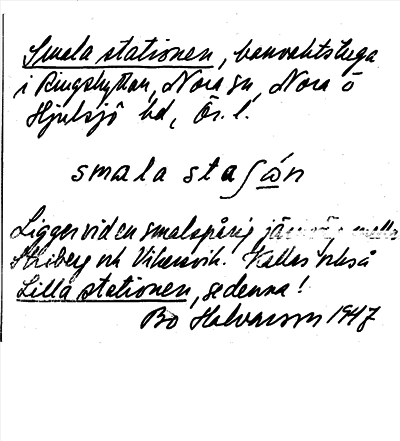 Smala stationen, banvaktstuga
i Ringshyttan, Nora sn, Nora o
Hjulsjö hd, Ör. l.
smala staʃώ̲n
Ligger vid en smalspårig järnväg mella
Striberg och Vikersvik. Kallas också
Lilla stationen, se denna!
Bo Halvarson 1947